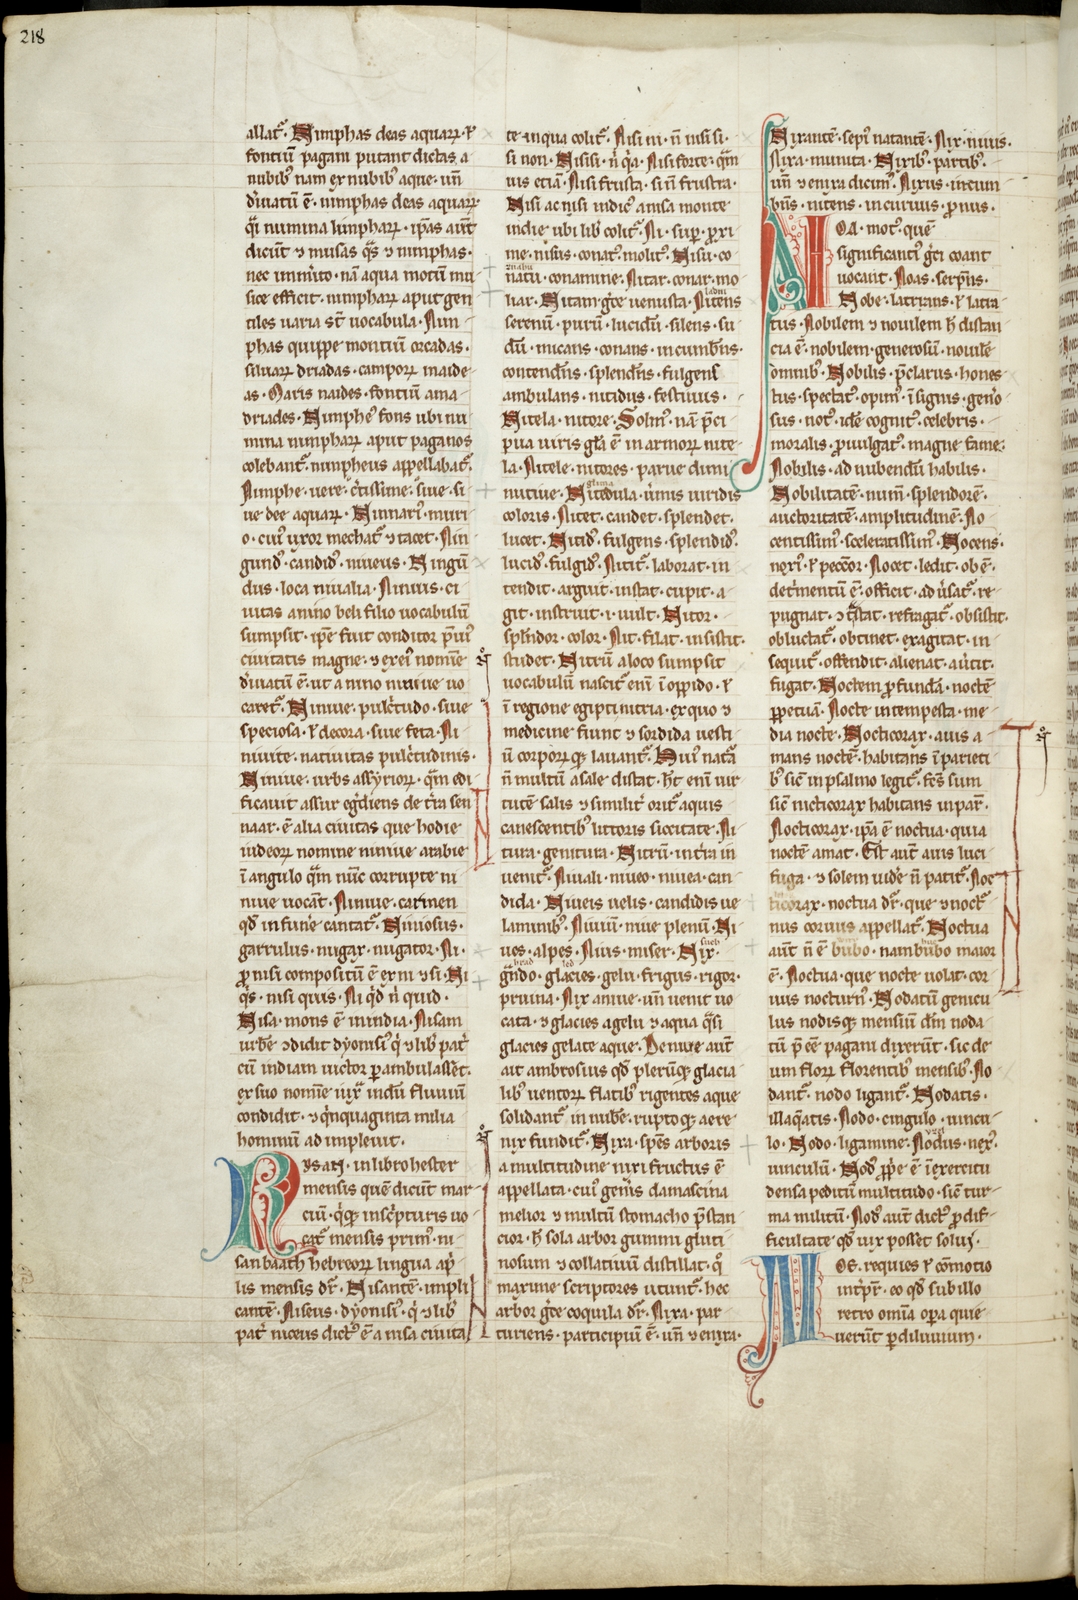 218
allat᷑. Nimphas deas aquaꝝ ł
fontiũ pagani putant dictas a
nubibꝰ nam ex nubibꝰ aque. uñ
diuatũ ē. nimphas deas aquaꝝ
qͣi numina limphaꝝ. ip̃as aũt
dicũt ⁊ musas qͣs ⁊ nimphas.
nec inmito. nã aqua motũ mu
sice efficit. nimphaꝝ aput gen
tiles uaria st̃ uocabula. Nim
phas quippe montiũ orcadas.
siluaꝝ driadas. campoꝝ maide
as. Maris naides. fontiũ ama
driades. Nimpheꝰ fons ubi nu
mina nimphaꝝ aput paganos
colebant᷑. nimpheus appellabat᷑.
Nimphe. uere. c̃tissime. siue. si
ue dee aquaꝝ. Ninnariꝰ. muri
o. cuiꝰ uxor mechat᷑ ⁊ tacet. Nin
gundꝰ. candidꝰ. niueus. Ningũ
dus. loca niualia. Niniuis. ci
uitas a nino beli filio uocabulũ
sumpsit. ip̃e fuit conditor p̃uiꝰ
ciuitatis magne. ⁊ ex eiꝰ nomine
diuatũ ē. ut a nino niniue uo
caret᷑. Niniue. pulc̃tudo. siue
speciosa. ł decora. siue feta. Ni
niuite. natiuitas pulc̃tudinis.
Niniue. urbs assyrioꝝ. qͣm edi
ficauit assur eg̃diens de t̃ra sen
naar. ē alia ciuitas que hodie
iudeoꝝ nomine niniue arabie
ĩ angulo qͣm nũc corrupte ni
niue uocãt. Niniue. carmen
qd̃ in fuñe cantat᷑. Niniosus.
garrulus. nugax. nugator. Ni.
ꝓ nisi compositũ ē ex ni ⁊ si. Ni
qͥs. nisi quis. Ni qͥd ni quid.
Nisa. mons ē in india. Nisam
urbẽ ꝯdidit dyonisiꝰ qͥ ⁊ lib̃ pat̃
cũ indiam uictor ꝑambulasset.
ex suo nomine iuxͣ indũ fluuiũ
condidit. ⁊ qͥnquaginta milia
hominũ ad impleuit.
Nysan. in libro hester
mensis quẽ dicũt mar
ciũ. qͥ qꝫ in sc̃pturis uo
cat᷑ mensis primꝰ. ni
san baath hebreoꝝ lingua apͥ
lis mensis dr̃. Nisantẽ. impli
cantẽ. Niseus. dyonisiꝰ. qͥ ⁊ lib̃
pat̃ niceus dictꝰ ē a nisa ciuita
te. in qua colit᷑. Nisi ni. ñ insi si.
si non. Nisisi. ñ qͥa. Nisi forte. qͣm
uis etiã. Nisi frusta. si ñ frustra.
Nisi ac nysi indicꝰ a nisa monte
indie ubi lib̃ colit᷑. Ni. suꝑ. ꝓxi
me. nisus. conatꝰ. molitꝰ. Nisu. co
natu. conamine. Nitar. conar. mo
liar. Nitam. gͣce uenusta. Nitens
serenũ. purũ. lucidũ. silens. su
dũ. micans. conans. incumbẽs.
contendẽs. splendẽs. fulgens
ambulans. nitidus. festiuus.
Nitela. nitore. Solinꝰ. nã p̃ci
pua uiris gl̃a ē in armoꝝ nite
la. Nitele. nitores. parue dimi
nutiue. Nitedula. ũmis uiridis
coloris. Nitet. candet. splendet.
lucet. Nitidꝰ. fulgens. splendidꝰ.
lucidꝰ. fulgidꝰ. Nitit᷑. laborat. in
tendit. arguit. instat. cupit. a
git. instruit. i. uult. Nitor.
splendor. color. Nit. filat. insistit.
studet. Nitrũ a loco sumpsit
uocabulũ nascit᷑ enĩ ĩ oppido. ł
ĩ regione egipti nitria. ex quo ⁊
medicine fiunt ⁊ sordida uesti
ũ corporũ qꝫ lauant᷑. Huiꝰ natͣa
ñ multũ a sale distat. h̃t enĩ uir
tutẽ salis ⁊ similit̃ orit᷑ aquis
canescentibꝰ littoris siccitate. Ni
tura. genitura. Nitrũ. int̃ra in
uenit᷑. Niuali. niueo. niuea. can
dida. Niueis uelis. candidis ue
laminibꝰ. Niuiũ. niue plenũ. Ni
ues. alpes. Nius. miser. Nix.
gͣndo. glacies. gelu. frigus. rigor.
pruina. Nix a niue. uñ uenit uo
cata. ⁊ glacies a gelu ⁊ aqua qͣsi
glacies gelate aque. De niue aũt
ait ambrosius qd̃ plerũqꝫ glacia
libꝰ uentoꝝ flatibꝰ rigentes aque
solidant᷑ in nube. ruptoqꝫ aere
nix fundit᷑. Nixa. sp̃es arboris
a multitudine nixi fructus ē
appellata. cuiꝰ gen̾is damascina
melior ⁊ multũ stomacho p̃stan
cior. h̃ sola arbor gummi gluti
nosum ⁊ collatiuũ distillat. qͦ
maxime scriptores utunt᷑. hec
arbor gͣce coquila dr̃. Nixa. par
turiens. participiũ ē. uñ ⁊ enixa.
Nixantẽ. sepiꝰ natantẽ. Nix. niuis.
Nixa. munita. Nixibꝰ. partibꝰ.
uñ ⁊ enixa dicimꝰ. Nixus. incum
bẽs. nitens. incuruus. pronus.
NOA. motꝰ. quẽ
significantiꝰ gͣci coant
uocant. Noas. serpẽs.
Nobe. latrans. ł latra
tus. Nobilem ⁊ nouilem h̃ distan
cia ē. nobilem. generosũ. nouilẽ
omnibꝰ. Nobilis. p̃clarus. hones
tus. spectatꝰ. opimꝰ. ĩsignis. geno
sus. notꝰ. idẽ cognitꝰ. celebris.
moralis. ꝓuulgatꝰ. magne fame.
Nobilis. ad nubendũ habilis.
Nobilitatẽ. nimiũ splendorẽ.
auctoritatẽ. amplitudinẽ. No
centissimꝰ. sceleratissimꝰ. Nocens.
nexiꝰ. ł peccor. Nocet. ledit. ob ē.
detrimentũ ē. officit. ad ũsat᷑. re
pugnat. ꝯtͣstat. refragat᷑. obsistit.
obluctat᷑. obtinet. exagitat. in
sequit᷑. offendit. alienat. aũtit.
fugat. Noctem ꝓfundã. noctẽ
ꝑpetuã. Nocte intempesta. me
dia nocte. Nocticorax. auis a
mans noctẽ. habitans ĩ parieti
bꝰ sic̃ in psalmo legit᷑. fc̃s sum
sic̃ nicticorax habitans in par̃.
Nocticorax. ip̃a ē noctua. quia
noctẽ amat. Est aũt auis luci
fuga. ⁊ solem uid̃e ñ patit᷑. Noc
ticorax. noctua dr̃. que ⁊ noct̃
nus coruus appellat᷑. Noctua
aũt ñ ē bubo. nam bubo maior
ē. Noctua. que nocte uolat. cor
uus nocturnꝰ. Nodatũ genicu
lus nodisqꝫ. mensiũ dñi noda
tũ p̃ eẽ pagani dixerũt. sic de
um floꝝ florentibꝰ mensibꝰ. No
dant᷑. nodo ligant᷑. Nodatis.
illaqͣatis. Nodo. cingulo. uincu
lo. Nodo. ligamine. Nodus. nexꝰ.
uinculũ. Nodꝰ ꝓp̃e ē ĩ exercitu
densa peditũ multitudo. sic̃ tur
ma militũ. Nodꝰ aũt dictꝰ ꝓ dif
ficultate qd̃ uix posset solui.
NOE. requies ł cõmotio
int̃pr̃. eo qd̃ sub illo
retro omĩa oꝑa quie
uerũt ꝑ diluuium.